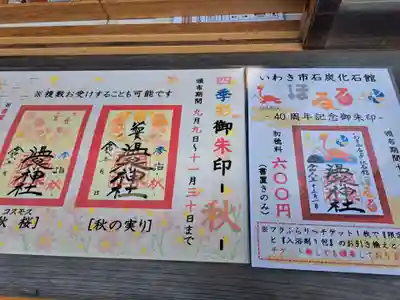 四季彩御朱印 - 秋 -
頒布期間 九月九日〜十一月三十日まで
※複数お受けすることも可能です
奉拝
温泉神社
秋
奉拝
温泉神社
秋
コスモス
秋 桜]
[秋の実り]
いわき市石炭化石館
ほるる
-40周年記念御朱印-
頒布期間
初穂料
六〇〇円
(書置きのみ)
温泉神社
※フラぶらりーチケット1枚で『限定
と【入浴剤1包】のお引き換えと
チケット